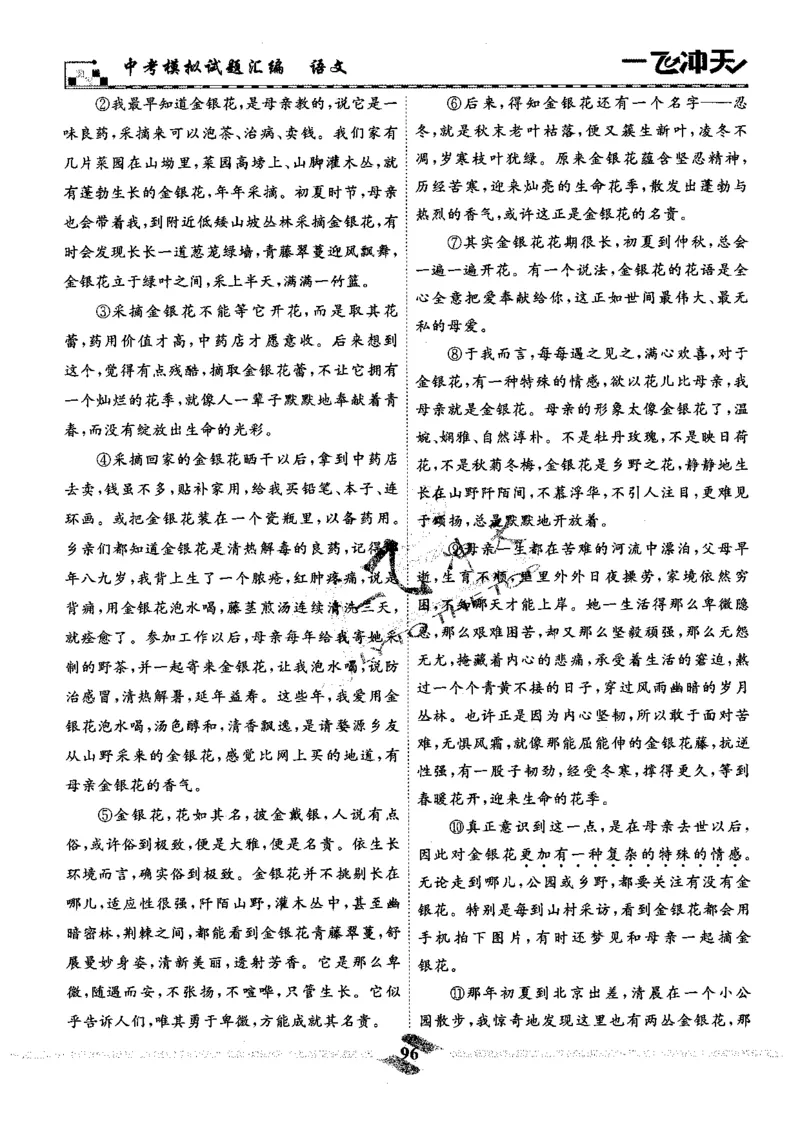 中考模拟试题汇编 语文
一飞冲天
②我最早知道金银花,是母亲教的,说它是一
味良药,采摘来可以泡茶、治病、卖钱。我们家有
几片菜园在山坳里,菜园高塝上、山脚灌木丛,就
有蓬勃生长的金银花,年年采摘。初夏时节,母亲
也会带着我,到附近低矮山坡丛林采摘金银花,有
时会发现长长一道葱茏绿墙,青藤翠蔓迎风飘舞,
金银花立于绿叶之间,采上半天,满满一竹篮。
③采摘金银花不能等它开花,而是取其花
蕾,药用价值才高,中药店才愿意收。后来想到
这个,觉得有点残酷,摘取金银花蕾,不让它拥有
一个灿烂的花季,就像人一辈子默默地奉献着青
春,而没有绽放出生命的光彩。
④采摘回家的金银花晒干以后,拿到中药店
去卖,钱虽不多,贴补家用,给我买铅笔、本子、连
环画。或把金银花装在一个瓷瓶里,以备药用。
乡亲们都知道金银花是清热解毒的良药,记得
年八九岁,我背上生了一个脓疮,红肿疼痛,说是
背痈,用金银花泡水喝,藤茎煎汤连续清洗三天,
就痊愈了。参加工作以后,母亲每年给我寄她采
制的野茶,并一起寄来金银花,让我泡水喝,说防
治感冒,清热解暑,延年益寿。这些年,我爱用金
银花泡水喝,汤色醇和,清香飘逸,是请婺源乡友
从山野采来的金银花,感觉比网上买的地道,有
母亲金银花的香气。
⑤金银花,花如其名,披金戴银,人说有点
俗,或许俗到极致,便是大雅,便是名贵。依生长
环境而言,确实俗到极致。金银花并不挑剔长在
哪儿,适应性很强,阡陌山野,灌木丛中,甚至幽
暗密林,荆棘之间,都能看到金银花青藤翠蔓,舒
展曼妙身姿,清新美丽,透射芳香。它是那么卑
微,随遇而安,不张扬,不喧哗,只管生长。它似
乎告诉人们,唯其勇于卑微,方能成就其名贵。
⑥后来,得知金银花还有一个名字——忍
冬,就是秋末老叶枯落,便又簇生新叶,凌冬不
凋,岁寒枝叶犹绿。原来金银花蕴含坚忍精神,
历经苦寒,迎来灿亮的生命花季,散发出蓬勃与
热烈的香气,或许这正是金银花的名贵。
⑦其实金银花花期很长,初夏到仲秋,总会
一遍一遍开花。有一个说法,金银花的花语是全
心全意把爱奉献给你,这正如世间最伟大、最无
私的母爱。
⑧于我而言,每每遇之见之,满心欢喜,对于
金银花,有一种特殊的情感,欲以花儿比母亲,我
母亲就是金银花。母亲的形象太像金银花了,温
婉、娴雅、自然淳朴。不是牡丹玫瑰,不是映日荷
花,不是秋菊冬梅,金银花是乡野之花,静静地生
长在山野阡陌间,不慕浮华,不引人注目,更难见
于颂扬,总是默默地开放着。
⑨母亲一生都在苦难的河流中漂泊,父母早
逝,生育不顺,里里外外日夜操劳,家境依然穷
困,不知哪天才能上岸。她一生活得那么卑微隐
忍,那么艰难困苦,却又那么坚毅顽强,那么无怨
无尤,掩藏着内心的悲痛,承受着生活的窘迫,熬
过一个个青黄不接的日子,穿过风雨幽暗的岁月
丛林。也许正是因为内心坚韧,所以敢于面对苦
难,无惧风霜,就像那能屈能伸的金银花藤,抗逆
性强,有一股子韧劲,经受冬寒,撑得更久,等到
春暖花开,迎来生命的花季。
⑩真正意识到这一点,是在母亲去世以后,
因此对金银花更加有一种复杂的特殊的情感。
无论走到哪儿,公园或乡野,都要关注有没有金
银花。特别是每到山村采访,看到金银花都会用
手机拍下图片,有时还梦见和母亲一起摘金
银花。
⑪那年初夏到北京出差,清晨在一个小公
园散步,我惊奇地发现这里也有两丛金银花,那
96